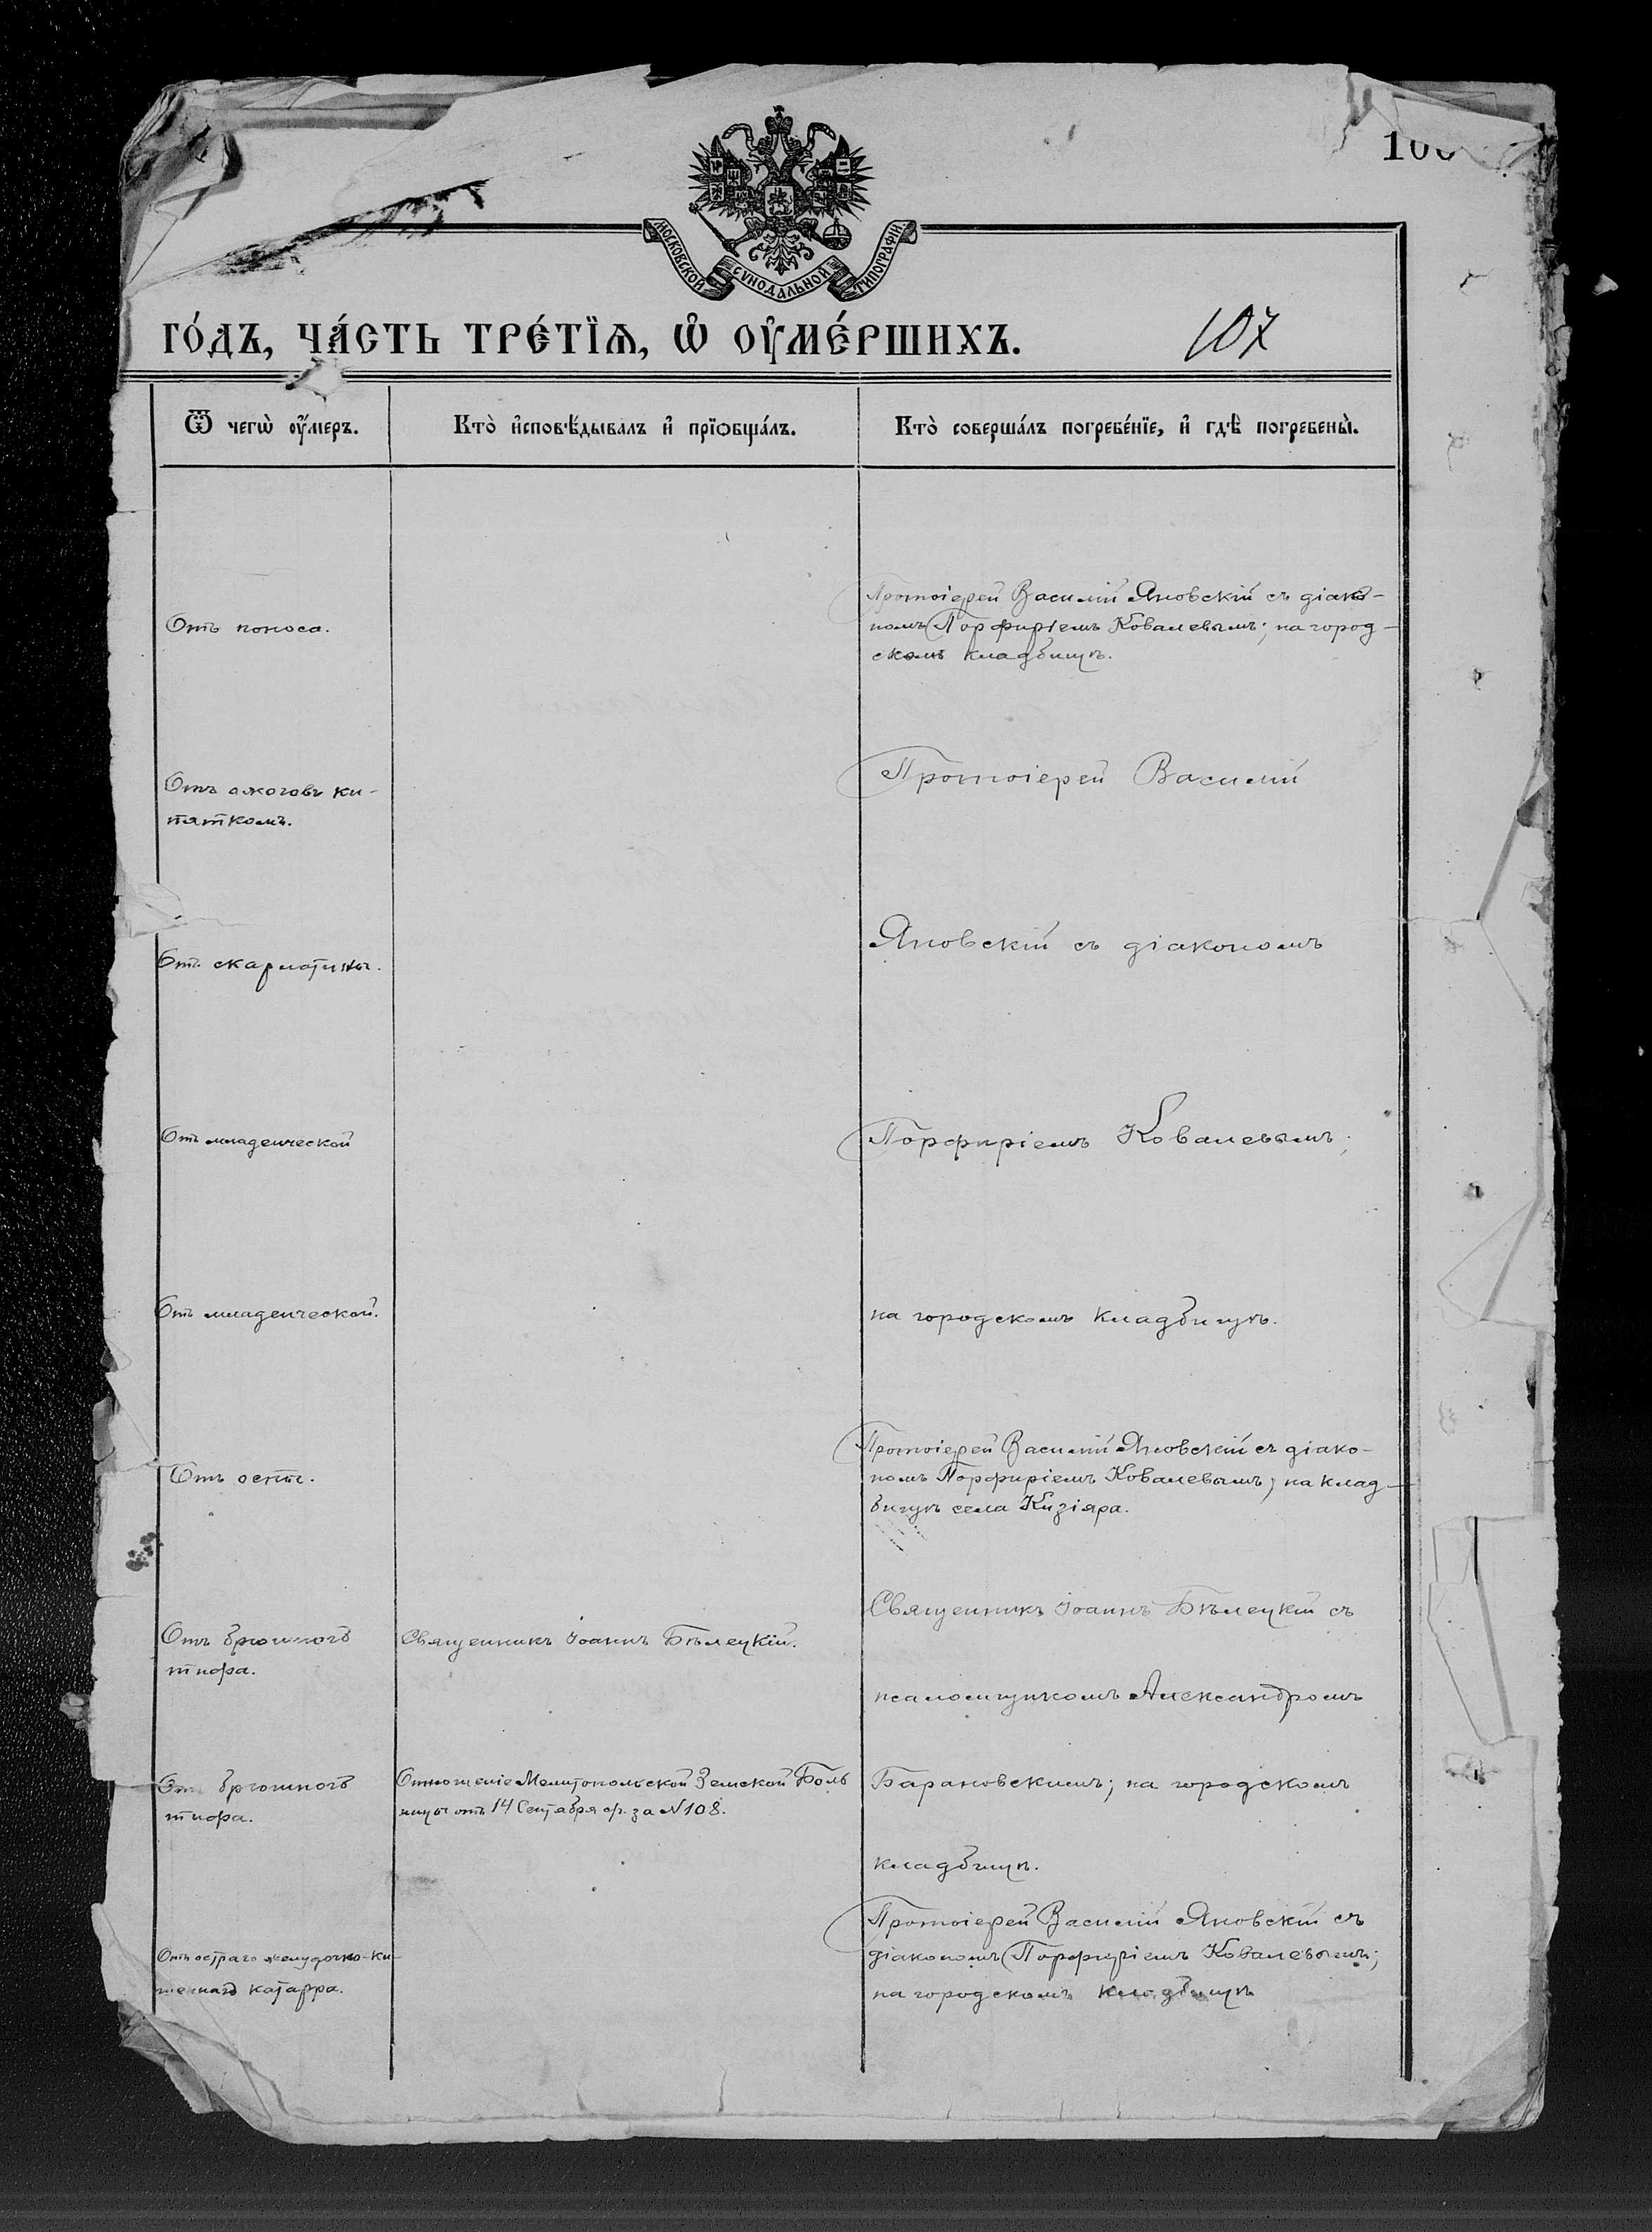 МОСКОВСКОЙ СѴНОДАЛЬНОЙ ТИПОГРАФІИ
107
го́дъ, ча́сть тре́тїѧ, ѡ҆ ᲂу҆ме́ршихъ.
Ѿ чегѡ̀ ᲂу҆́меръ.
Кто̀ и҆сповѣ́дывалъ и҆ прїѡбща́лъ.
Кто̀ соверша́лъ погребе́нїе, и҆ гдѣ̀ погребены̀.
Отъ поноса.
Протоіерей Василій Яновскій съ діако-
номъ Порфиріемъ Ковалевымъ; на город-
скомъ кладбищѣ.
Отъ ожоговъ ки-
пяткомъ.
Протоіерей Василій
Отъ скарлатины.
Яновскій съ діакономъ
Отъ младенческой
Порфиріемъ Ковалевымъ;
Отъ младенческой.
на городскомъ кладбищѣ.
Отъ оспы.
Протоіерей Василій Яновскій съ діако-
номъ Порфиріемъ Ковалевымъ; на клад-
бищѣ села Кизіяра.
Отъ брюшного
тифа.
Священникъ Іоаннъ Бѣлецкій.
Священникъ Іоаннъ Бѣлецкій съ
псаломщикомъ Александромъ
Отъ брюшного
тифа.
Отношеніе Мелитопольской Земской Боль
ницы отъ 14 Сентября за N 108.
Барановскимъ; на городскомъ
кладбищѣ.
Отъ остраго желудочно-ки-
шечнаго катарра.
Протоіерей Василій Яновскій съ
діакономъ Порфиріемъ Ковалевымъ;
на городскомъ кладбищѣ